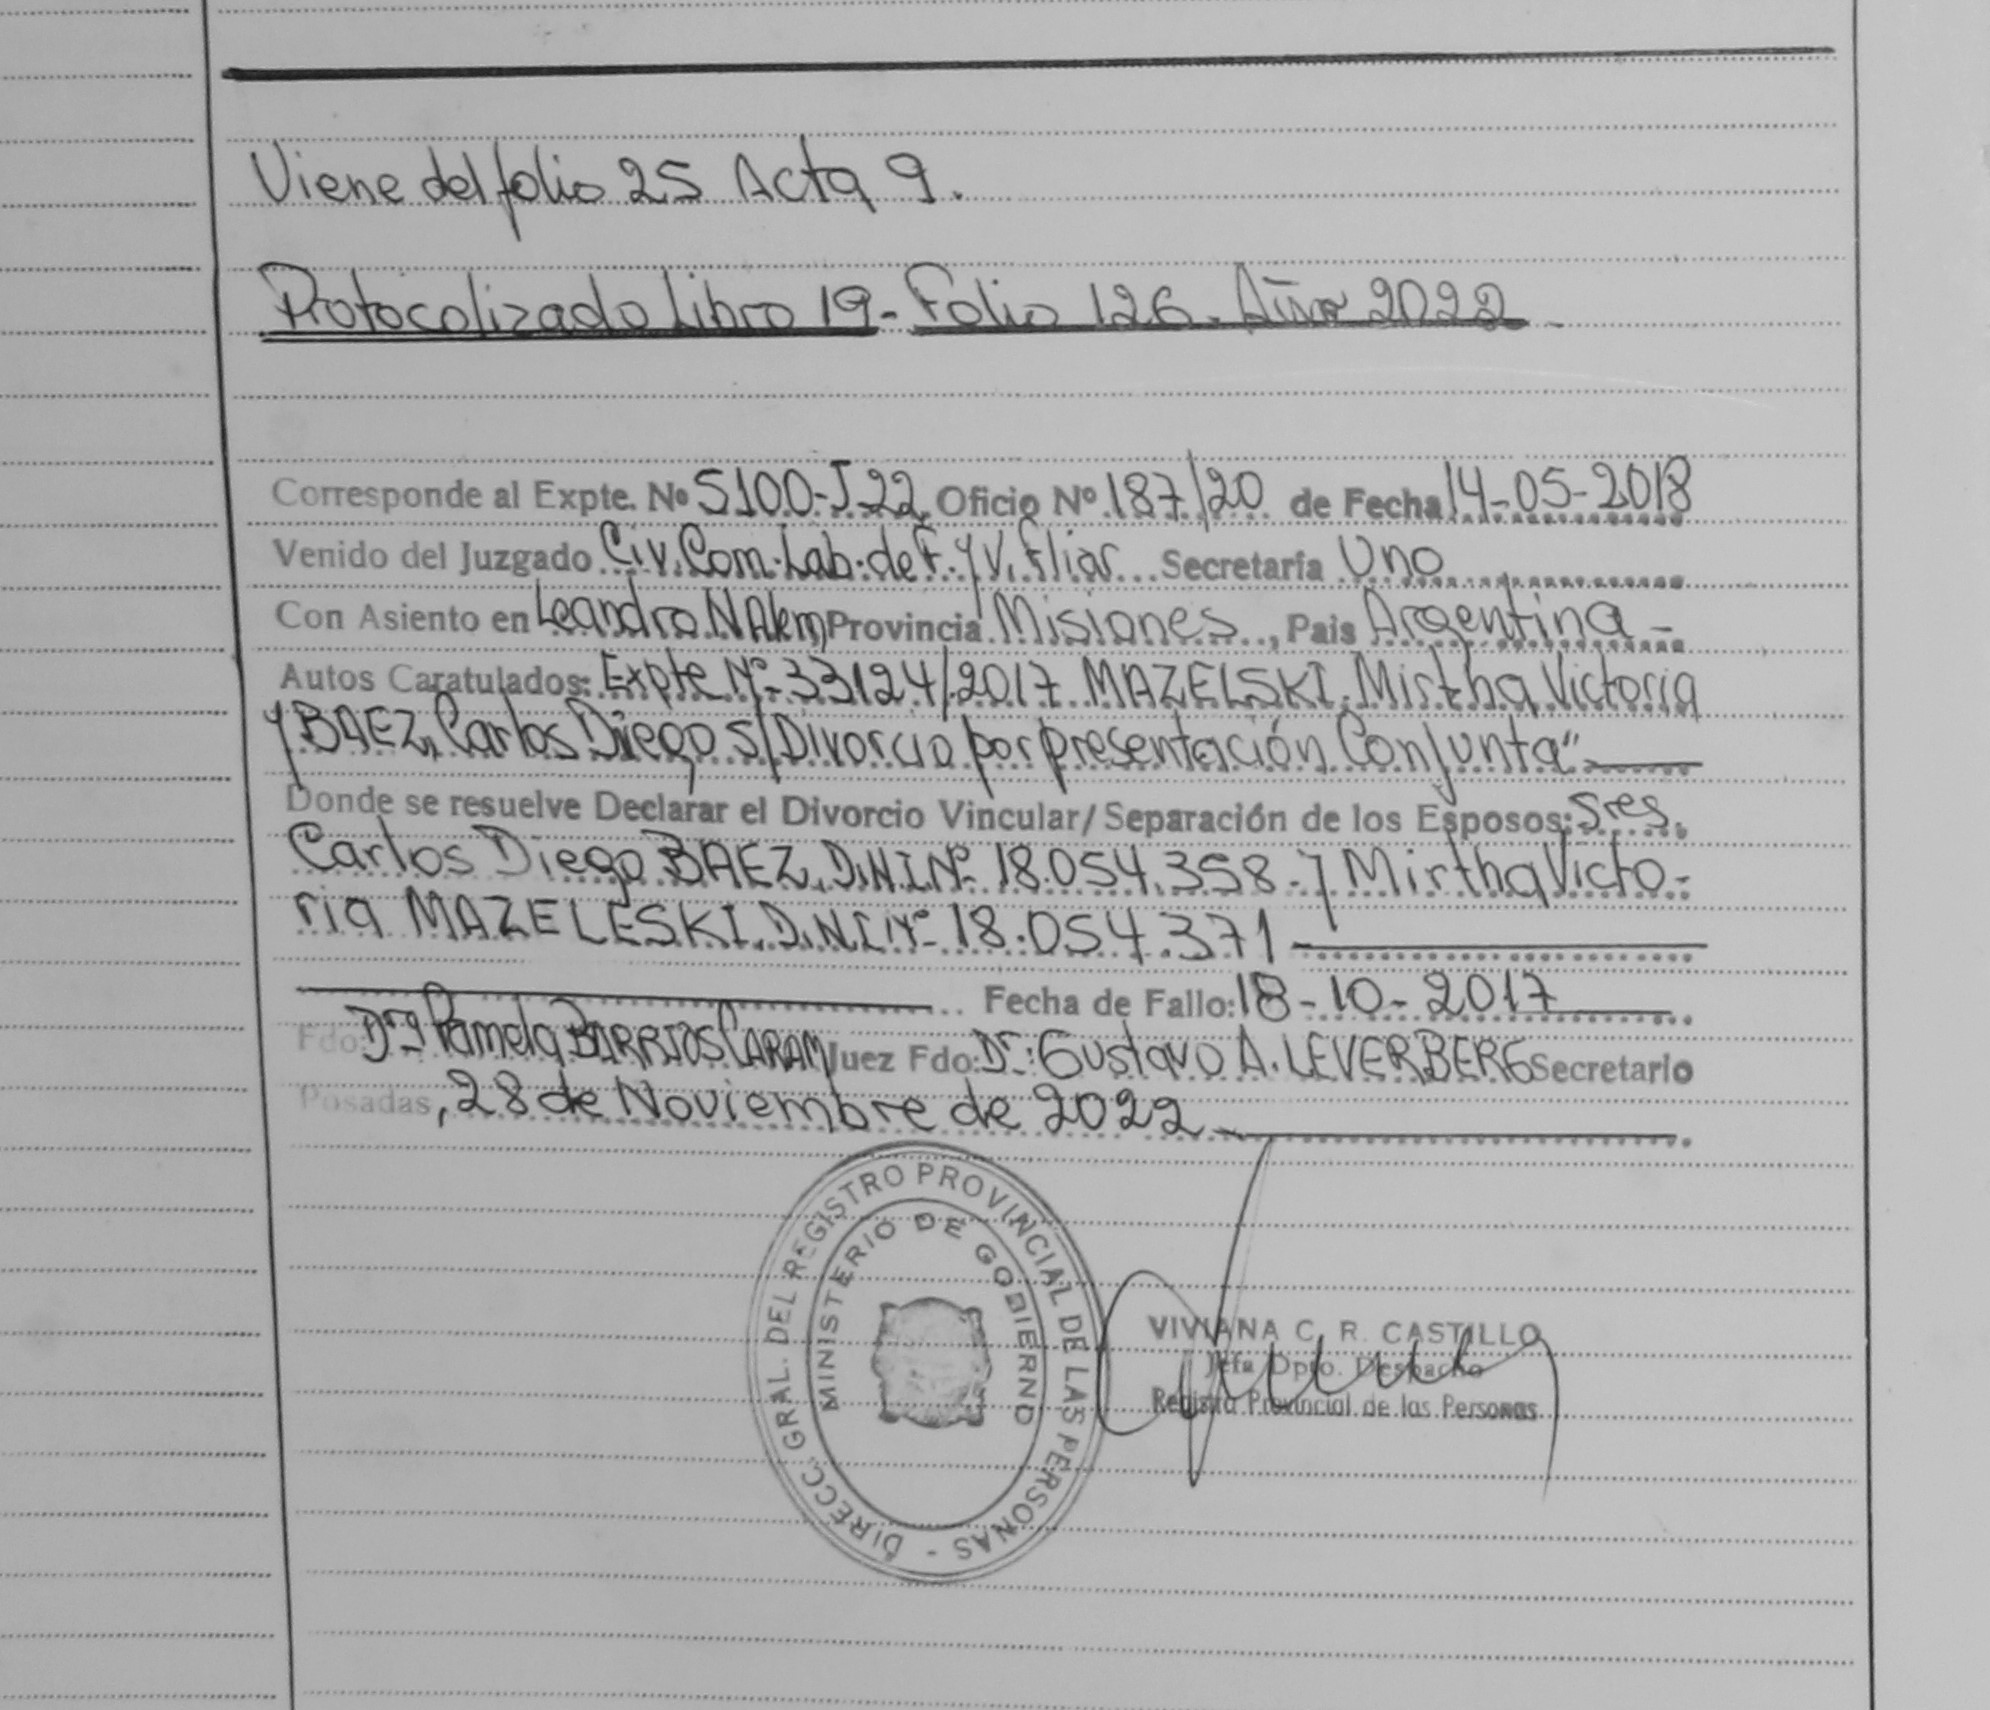 Viene del folio 25 Acta 9.
Protocolizado Libro 19 - Folio 126. Año 2022.
Corresponde al Expte. Nº 5100-J-22, Oficio Nº 187/20 de Fecha 14-05-2018
Venido del Juzgado Civ. Com. Lab. de F. y V. Fliar Secretaría Uno
Con Asiento en Leandro N Alem Provincia Misiones, Pais Argentina -
Autos Caratulados: Expte Nº 33124/2017 MAZELSKI, Mirtha Victoria
y BAEZ, Carlos Diego S/ Divorcio por presentación Conjunta".
Donde se resuelve Declarar el Divorcio Vincular/ Separación de los Esposos: Sres.
Carlos Diego BAEZ, D.N.I Nº 18.054.358 - y Mirtha Victo-
ria MAZELESKI, D.N.I Nº 18.054.371
Fecha de Fallo: 18-10-2017
Fdo: Dra Pamela BARRIOS CARAM Juez Fdo: Dr. Gustavo A. LEVERBERG Secretario
Posadas, 28 de Noviembre de 2022.
DIRECC. GRAL. DEL REGISTRO PROVINCIAL DE LAS PERSONAS -
MINISTERIO DE GOBIERNO
VIVIANA C. R. CASTILLO
Jefa Dpto. Despacho
Registro Provincial de las Personas